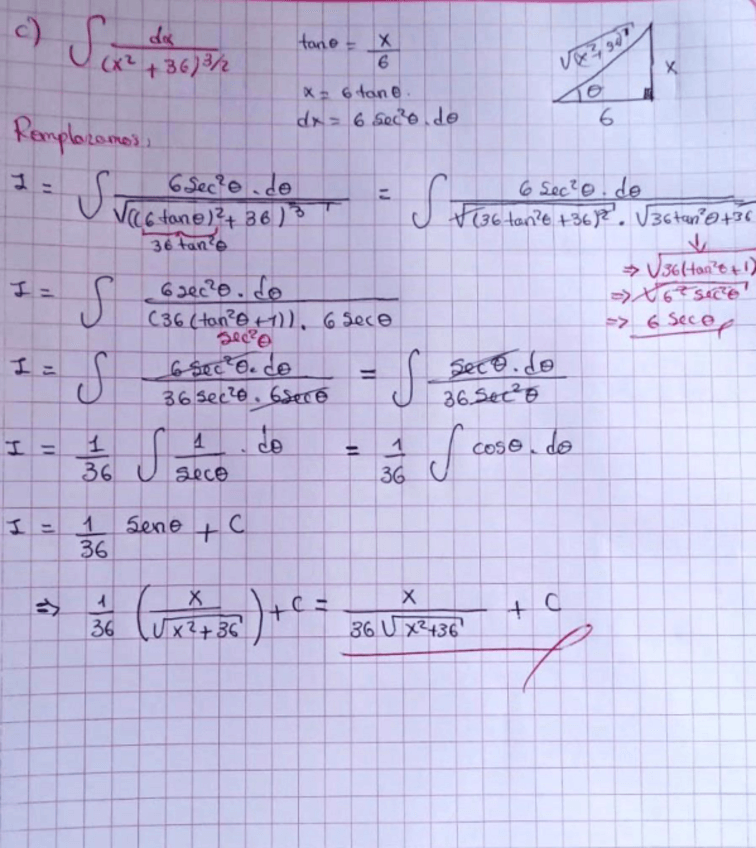 c) ∫ dx / (x² + 36)^3/2
tanθ = x / 6
x = 6 tanθ.
dx = 6 sec²θ . dθ
√(x²+36)
x
θ
6
Remplazamos,
I = ∫ 6 sec²θ . dθ / √((6 tanθ)² + 36)³ = ∫ 6 sec²θ . dθ / √(36 tan²θ + 36)² . √36 tan²θ + 36
36 tan²θ
⇒ √36(tan²θ + 1)
⇒ √6² sec²θ
⇒ 6 secθ
I = ∫ 6 sec²θ . dθ / (36 (tan²θ + 1)) . 6 secθ
sec²θ
I = ∫ 6 sec²θ . dθ / 36 sec²θ . 6 secθ = ∫ secθ . dθ / 36 sec²θ
I = 1/36 ∫ 1/secθ . dθ = 1/36 ∫ cosθ . dθ
I = 1/36 senθ + C
⇒ 1/36 (x / √x² + 36) + C = x / 36 √x²+36 + C